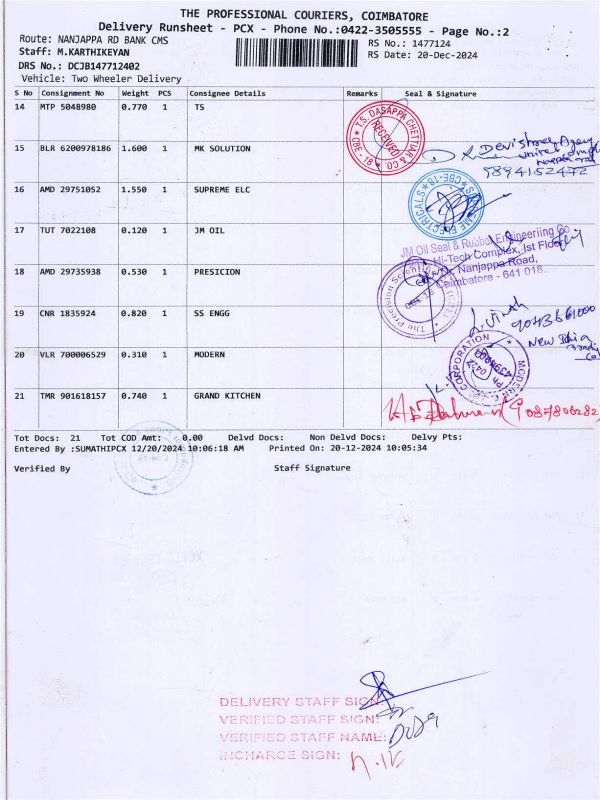 THE PROFESSIONAL COURIERS, COIMBATORE
Delivery Runsheet - PCX - Phone No.:0422-3505555 - Page No.:2
Route: NANJAPPA RD BANK CMS
RS No.: 1477124
Staff: M.KARTHIKEYAN
RS Date: 20-Dec-2024
DRS No.: DCJB147712402
Vehicle: Two Wheeler Delivery
S No Consignment No Weight PCS Consignee Details Remarks Seal & Signature
14 MTP 5048980 0.770 1 TS
T.S. DASAPPA CHETTIAR & CO.
RECEIVED
15 BLR 6200978186 1.600 1 MK SOLUTION
9894152472
16 AMD 29751052 1.550 1 SUPREME ELC
17 TUT 7022108 0.120 1 JM OIL
JM Oil Seal & Rubber Engineeriing Co
Hi-Tech Complex, Ist Floor
Nanjappa Road,
Coimbatore - 641 018.
18 AMD 29735938 0.530 1 PRESICION
19 CNR 1835924 0.820 1 SS ENGG
20 VLR 700006529 0.310 1 MODERN
21 TMR 901618157 0.740 1 GRAND KITCHEN
Tot Docs: 21 Tot COD Amt: 0.00 Delvd Docs: Non Delvd Docs: Delvy Pts:
Entered By :SUMATHIPCX 12/20/2024 10:06:18 AM Printed On: 20-12-2024 10:05:34
Verified By Staff Signature
DELIVERY STAFF SIGN:
VERIFIED STAFF SIGN:
VERIFIED STAFF NAME:
INCHARGE SIGN: